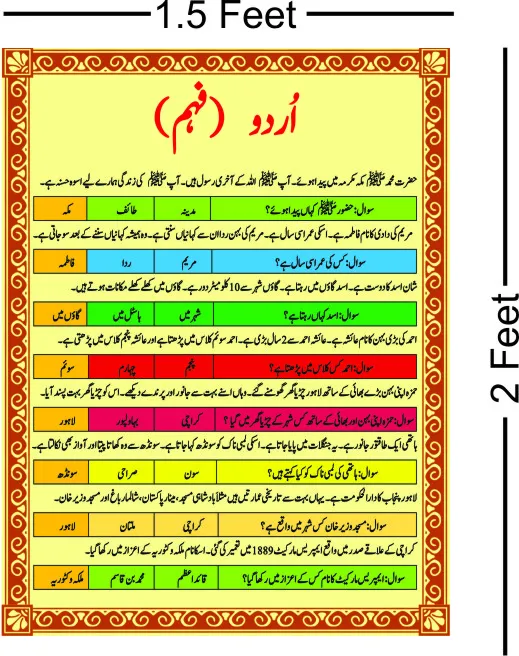 1.5 Feet
2 Feet
اُردو (فہم)
حضرت محمد ﷺ مکہ مکرمہ میں پیدا ہوئے۔ آپ ﷺ اللہ کے آخری رسول ہیں۔ آپ ﷺ کی زندگی ہمارے لیے اسوہ حسنہ ہے۔
سوال: حضور ﷺ کہاں پیدا ہوئے؟ مدینہ طائف مکہ
مریم کی دادی کا نام فاطمہ ہے۔ اسکی عمر اسی سال ہے۔ مریم کی بہن ردا ان سے کہانیاں سنتی ہے۔ وہ ہمیشہ کہانیاں سننے کے بعد سو جاتی ہے۔
سوال: کس کی عمر اسی سال ہے؟ مریم ردا فاطمہ
شان اسد کا دوست ہے۔ اسد گاؤں میں رہتا ہے۔ گاؤں شہر سے 10 کلومیٹر دور ہے۔ گاؤں میں کھلے کھلے مکانات ہوتے ہیں۔
سوال: اسد کہاں رہتا ہے؟ شہر میں ہاسٹل میں گاؤں میں
احمد کی بڑی بہن کا نام عائشہ ہے۔ عائشہ احمد سے 2 سال بڑی ہے۔ احمد سوئم کلاس میں پڑھتا ہے اور عائشہ پنجم کلاس میں پڑھتی ہے۔
سوال: احمد کس کلاس میں پڑھتا ہے؟ پنجم چہارم سوئم
حمزہ اپنی بہن بڑے بھائی کے ساتھ لاہور چڑیا گھر گھومنے گئے۔ وہاں اسنے بہت سے جانور اور پرندے دیکھے۔ اس کو چڑیا گھر بہت پسند آیا۔
سوال: حمزہ اپنی بہن اور بھائی کے ساتھ کس شہر کے چڑیا گھر میں گیا؟ کراچی بہاولپور لاہور
ہاتھی ایک طاقتور جانور ہے۔ یہ جنگلات میں پایا جاتا ہے۔ اسکی لمبی ناک کو سونڈھ کہا جاتا ہے۔ سونڈھ سے وہ کھاتا پیتا اور آواز بھی نکالتا ہے۔
سوال: ہاتھی کی لمبی ناک کو کیا کہتے ہیں؟ سون صراحی سونڈھ
لاہور پنجاب کا دارالحکومت ہے۔ یہاں بہت سے تاریخی عمارتیں ہیں مثلاً بادشاہی مسجد، مینار پاکستان، شالمار باغ اور مسجد وزیر خان۔
سوال: مسجد وزیر خان کس شہر میں واقع ہے؟ کراچی ملتان لاہور
کراچی کے علاقے صدر میں واقع ایمپریس مارکیٹ 1889 میں تعمیر کی گئی۔ اسکا نام ملکہ وکٹوریہ کے اعزاز میں رکھا گیا۔
سوال: ایمپریس مارکیٹ کا نام کس کے اعزاز میں رکھا گیا؟ قائداعظم محمد بن قاسم ملکہ وکٹوریہ